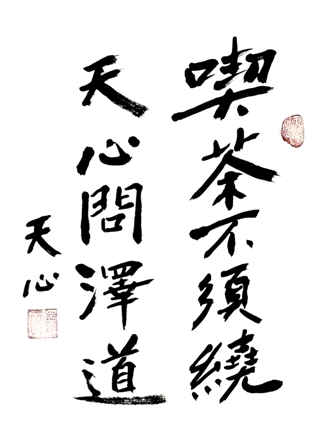 喫茶不須繞
天心問澤道
天心